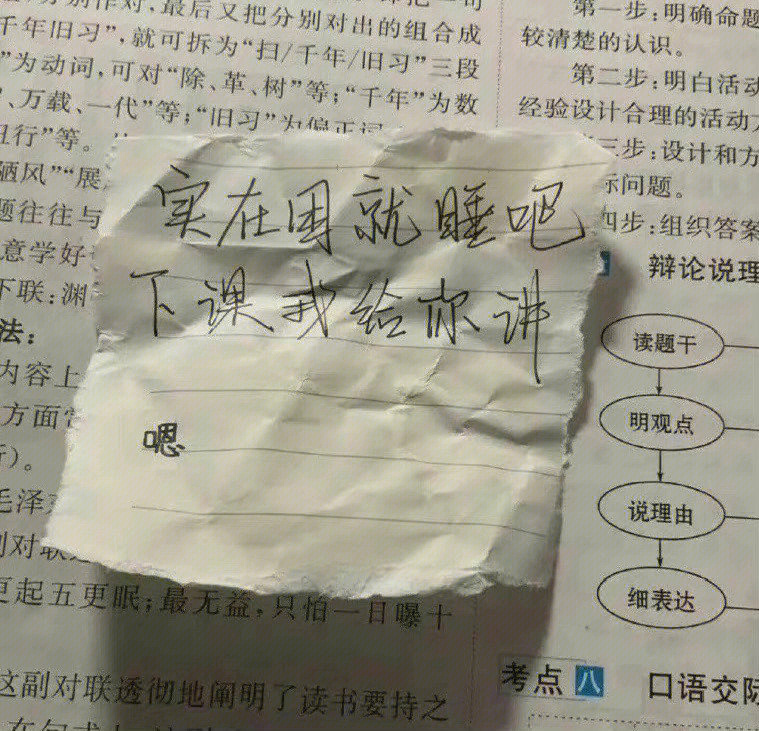 分别作对，最后又把分别对出的组合成
千年旧习”，就可拆为“扫/千年/旧习”三段
”为动词，可对“除、革、树”等；“千年”为数
、万载、一代”等；“旧习”为偏正词
行”等。
陋风”“展
题往往与
意学好
下联：渊
法：
内容上
方面
）。
毛泽
对联
更起五更眠；最无益，只怕一日曝十
这副对联透彻地阐明了读书要持之
实在困就睡吧
下课我给你讲
嗯
第一步：明确命题
较清楚的认识。
第二步：明白活动
经验设计合理的活动
三步：设计和方
际问题。
四步：组织答案
辩论说理
读题干
明观点
说理由
细表达
考点 八 口语交际